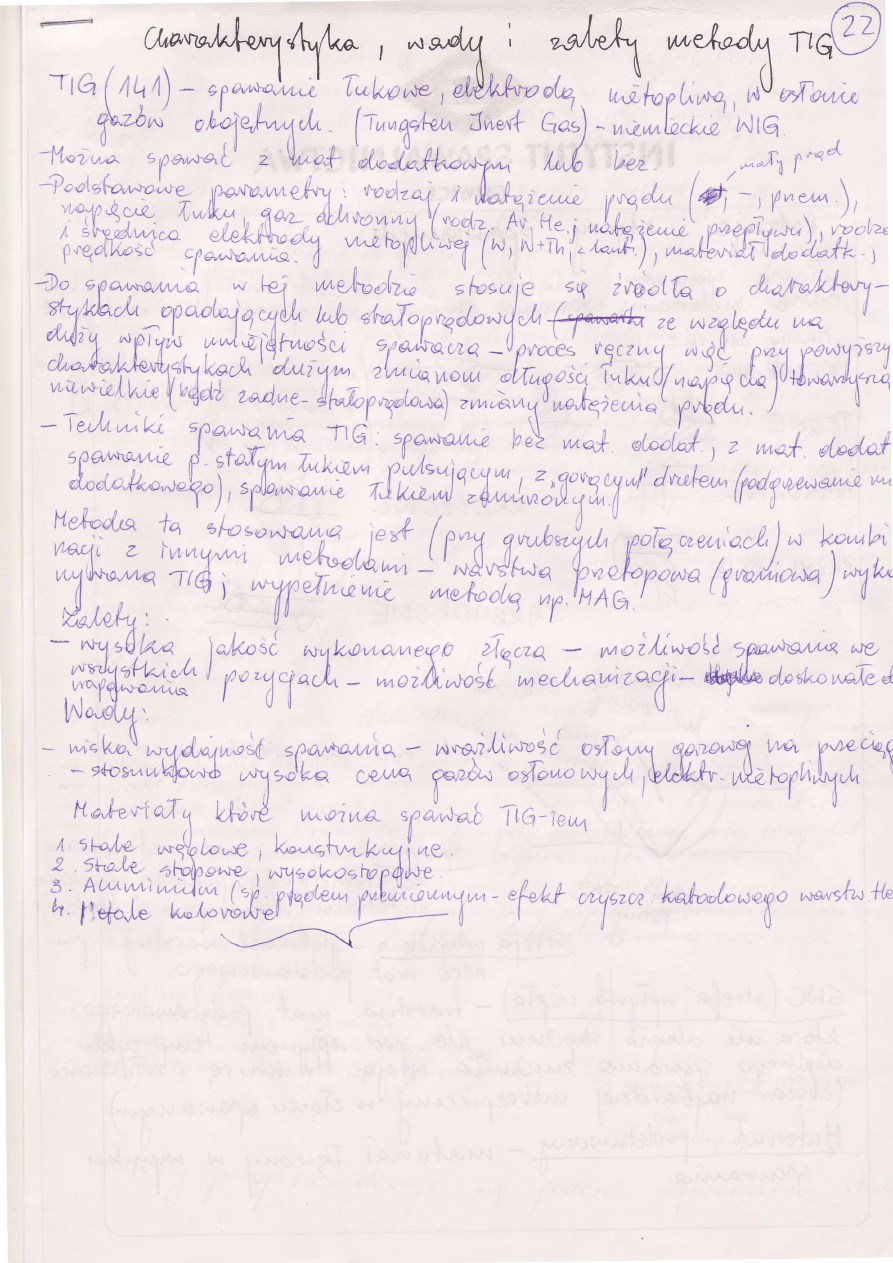 22
Charakterystyka, wady i zalety metody TIG
TIG (141) – spawanie łukowe, elektrodą nietopliwą, w osłonie
gazów obojętnych. (Tungsten Inert Gas) – niemieckie WIG.
– Można spawać z mat dodatkowym lub bez.
mały prąd
– Podstawowe parametry: rodzaj i natężenie prądu ( , –, przem.),
napięcie łuku, gaz ochronny (rodz. Ar, He.; natężenie przepływu), rodza
i średnica elektrody nietopliwej (W, W+Th, z lant.), materiał dodatk.,
prędkość spawania.
– Do spawania w tej metodzie stosuje się źródła o charaktery-
stykach opadających lub stałoprądowych ze względu na
duży wpływ umiejętności spawacza – proces ręczny więc przy powyższy
charakterystykach dużym zmianom długości łuku (napięcia) towarzyszą
niewielkie (bądź żadne - stałoprądowa) zmiany natężenia prądu.
– Techniki spawania TIG: spawanie bez mat. dodat., z mat. dodat
spawanie p. stałym łukiem pulsującym, z „gorącym" drutem (podgrzewanie m
dodatkowego), spawanie łukiem zanurzonym.
Metoda ta stosowana jest (przy grubszych połączeniach) w kombi
nacji z innymi metodami – warstwa przetopowa (graniowa) wyko
nywana TIG; wypełnienie metodą np. MAG.
Zalety:
– wysoka jakość wykonanego złącza – możliwość spawania we
wszystkich pozycjach – możliwość mechanizacji – doskonałe
Wady:
– niska wydajność spawania – wrażliwość osłony gazowej na przeciąg
– stosunkowo wysoka cena gazów osłonowych, elektr. nietopliwych
Materiały które można spawać TIG-iem
1. Stale węglowe, konstrukcyjne.
2. Stale stopowe, wysokostopowe.
3. Aluminium (sp. prądem przemiennym – efekt czyszcz. katodowego warstw. tle
4. Metale kolorowe